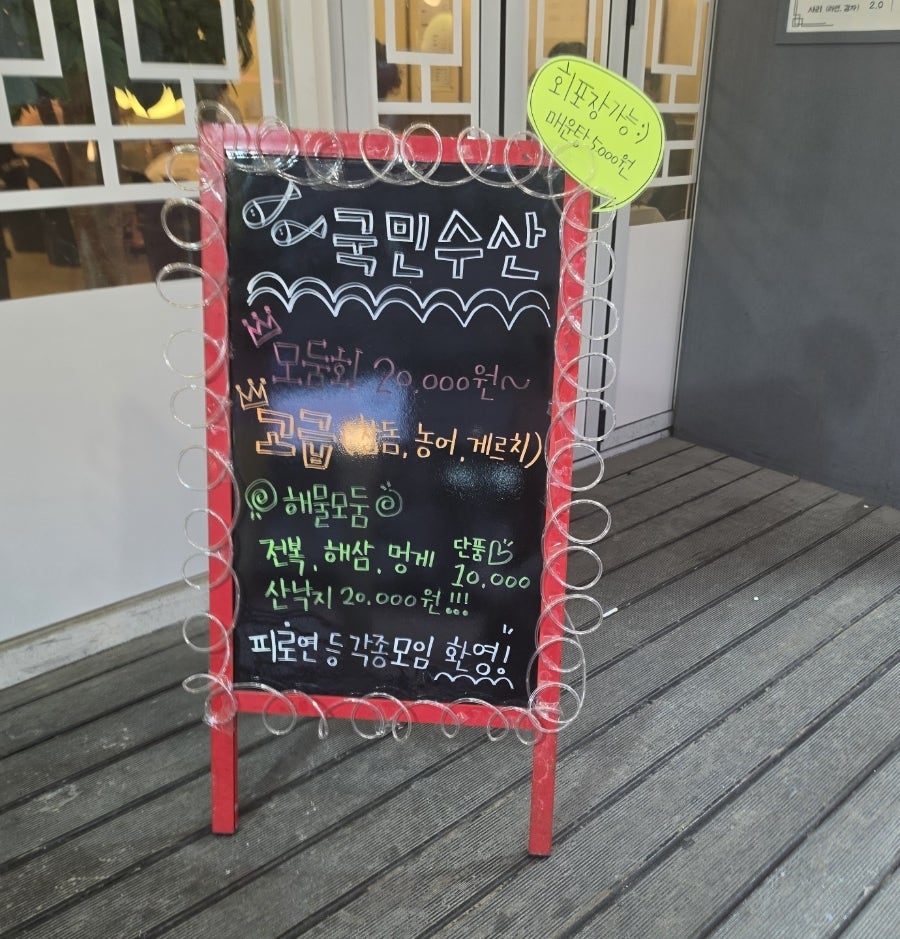 사리 (라면, 감자) 2.0
회포장가능:)
매운탕 5000원
국민수산
모둠회 20.000원~
고급 돔, 농어, 게르치)
해물모둠
전복, 해삼, 멍게
단품
10.000
산낙지 20.000원!!!
피로연 등 각종모임 환영!